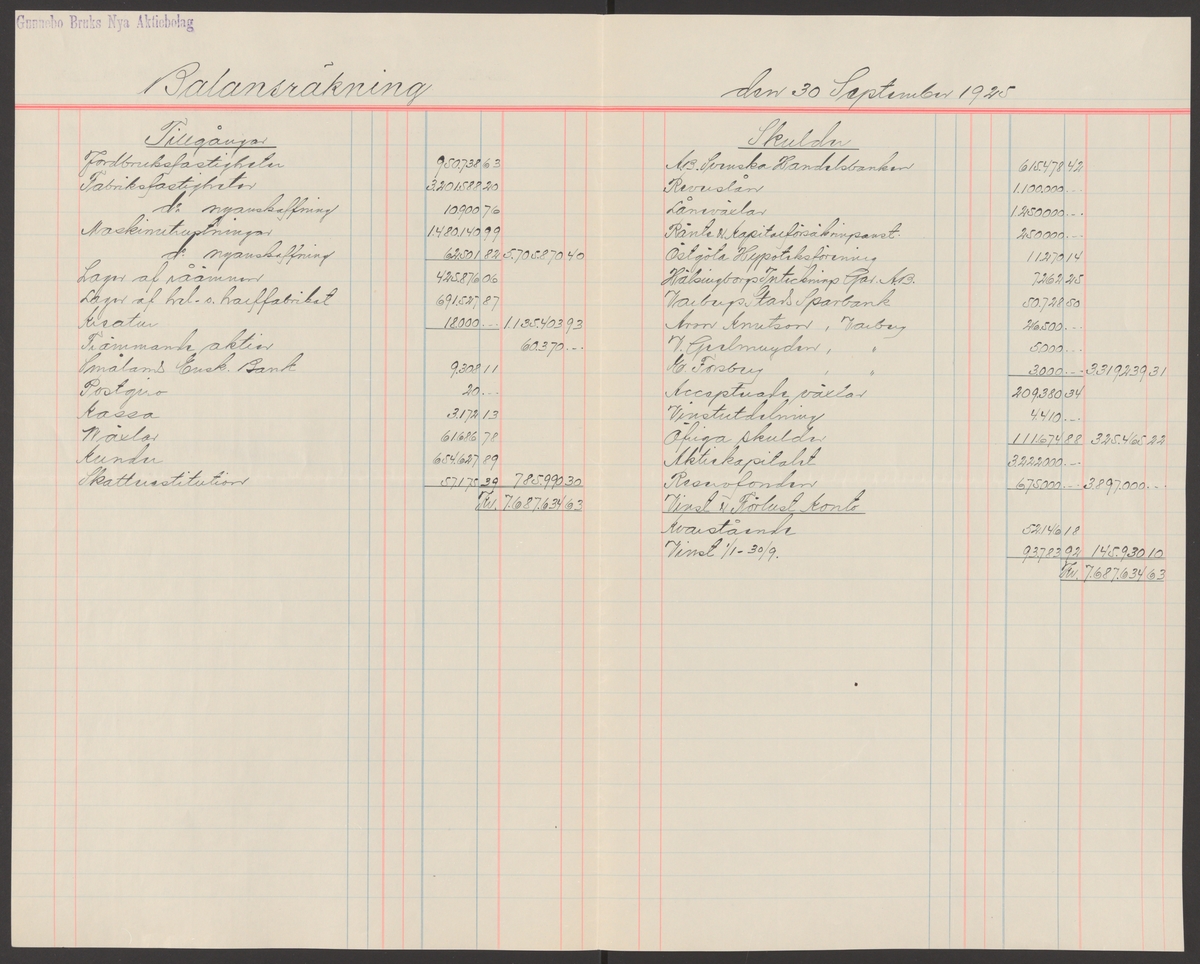 Gunnebo Bruks Nya Aktiebolag
Balansräkning den 30 September 1925
Tillgångar
Jordbruksfastigheter 950.738 63
Fabriksfastigheter 3.201.588 20
d:o nyanskaffning 10.900 76
Maskininrättningar 1.480.140 99
d:o nyanskaffning 62.501 82 5.705.870 40
Lager af råämnen 425.876 06
Lager af hel- o. halffabrikat 691.527 87
Kreatur 18.000 -- 1.135.403 93
Främmande aktier 60.370 --
Smålands Ensk. Bank 9.308 11
Postgiro 20 --
Kassa 3.172 13
Växlar 61.686 78
Kunder 654.627 89
Skatterestitution 57.175 39 785.990 30
Kr. 7.687.634 63
Skulder
A.B. Svenska Handelsbanken 615.478 42
Reverslån 1.100.000 --
Låneväxlar 1.250.000 --
Ränte & Kapitalförsäkringsanst. 250.000 --
Östgöta Hypoteksförening 11.270 14
Hälsingborgs Intecknings Gar. A.B. 7.262 25
Varbergs Stads Sparbank 50.728 50
Aron Knutson, Varberg 26.500 --
V. Geelmuyden, " 5.000 --
Forsberg, " 3.000 -- 3.319.239 31
Accepterade växlar 209.380 34
Vinstutdelning 4.410 --
Öfriga skulder 111.674 88 325.465 22
Aktiekapitalet 3.222.000 --
Reservfonden 675.000 -- 3.897.000 --
Vinst & Förlust Konto
Kvarstående 52.146 18
Vinst 1/1 - 30/9. 93.783 92 145.930 10
Kr. 7.687.634 63